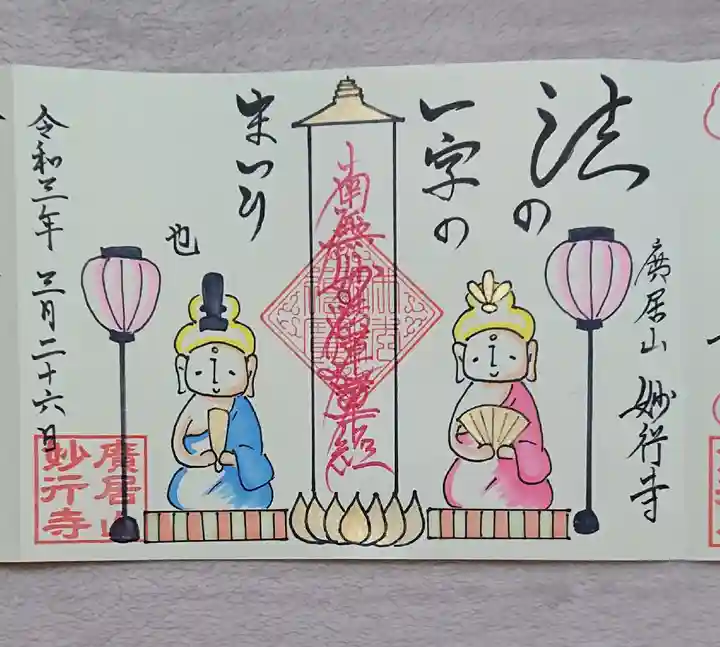 廣居山 妙行寺
法の
一字の
南無妙法蓮華経
まいり
也
令和三年 三月二十六日
廣居山
妙行寺